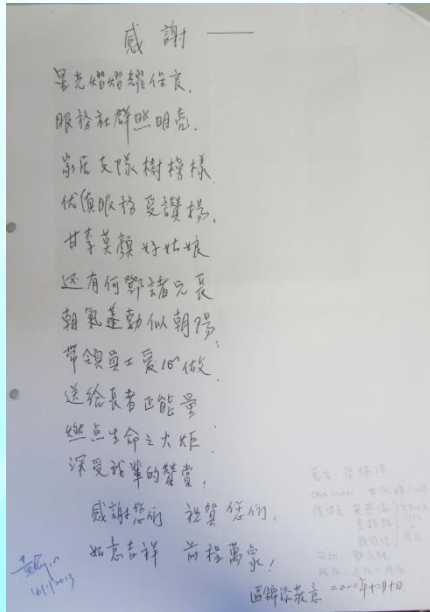 感謝——
星光熠熠耀保良.
服務社群照明亮.
家居支隊樹榜樣
优质服務受讚揚.
甘李莫顏好姑娘
还有何鄧諸兄長
朝氣蓬勃似朝陽.
帶領員工愛心做.
送給長者正能量
燃点生命之火炬.
深受我輩的讚賞!
感謝您們 祝賀您們.
如意吉祥 前程萬象!